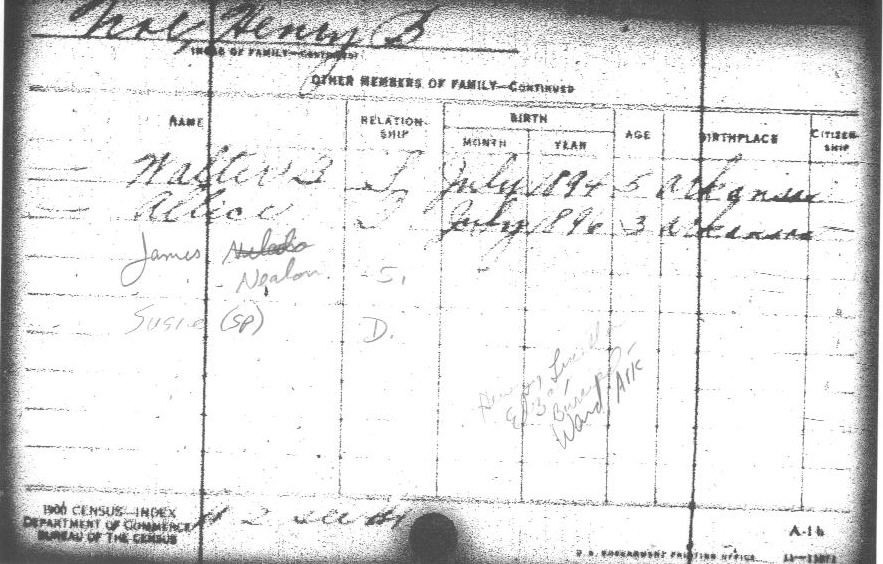 Henry B
(HEAD OF FAMILY—CONTINUED)
OTHER MEMBERS OF FAMILY—CONTINUED
NAME RELATION-SHIP BIRTH MONTH YEAR AGE BIRTHPLACE CITIZEN-SHIP
Walter B July 1894 5 Arkansas —
Alice July 1896 3 Arkansas —
James
Nealon S.
Susie (SP) D.
Ward, Ark
1900 CENSUS—INDEX
DEPARTMENT OF COMMERCE
BUREAU OF THE CENSUS
A-1b
U.S. GOVERNMENT PRINTING OFFICE